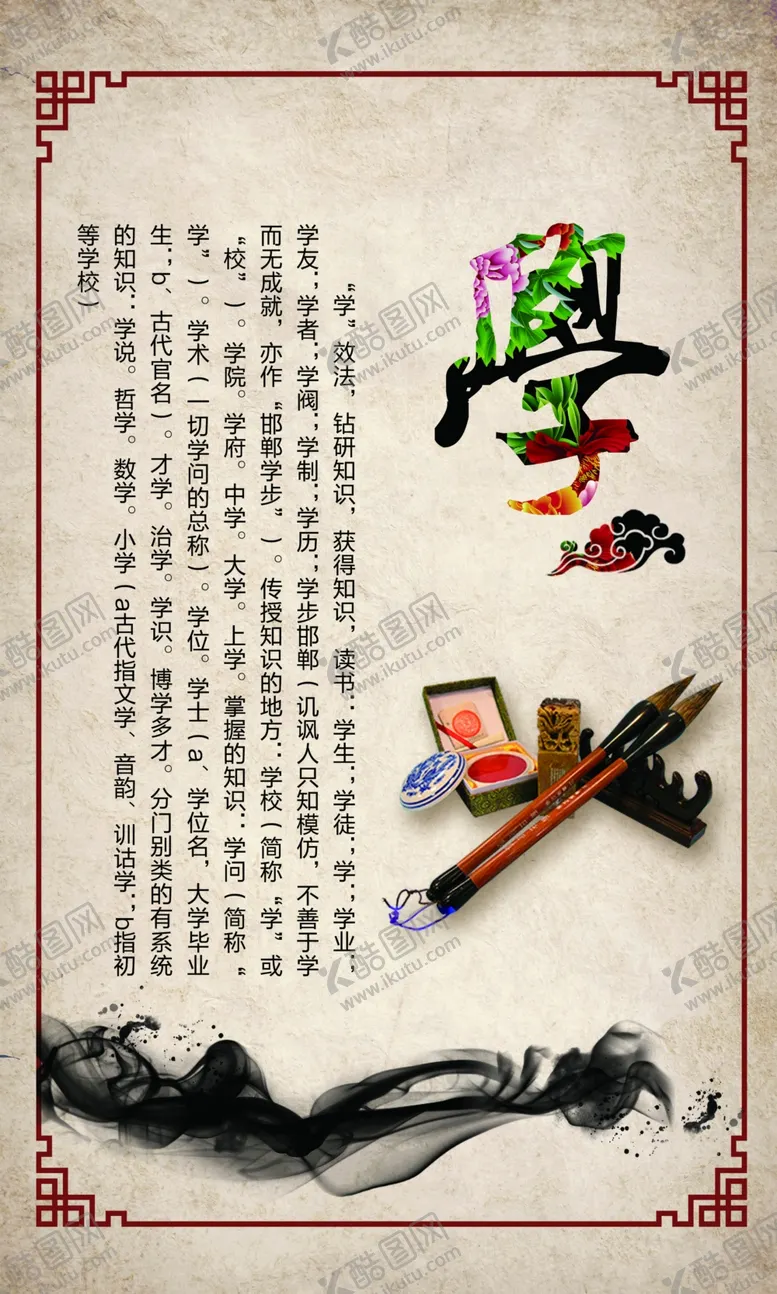 學
“学”效法，钻研知识，获得知识，读书：学生；学徒；学；学业；
学友；学者；学阀；学制；学历；学步邯郸（讥讽人只知模仿，不善于学
而无成就，亦作“邯郸学步”）。传授知识的地方：学校（简称“学”或
“校”）。学院。学府。中学。大学。上学。掌握的知识：学问（简称“
学”）。学术（一切学问的总称）。学位。学士（a、学位名，大学毕业
生；b、古代官名）。才学。治学。学识。博学多才。分门别类的有系统
的知识：学说。哲学。数学。小学（a古代指文学、音韵、训诂学；b指初
等学校）
酷图网
www.ikutu.com